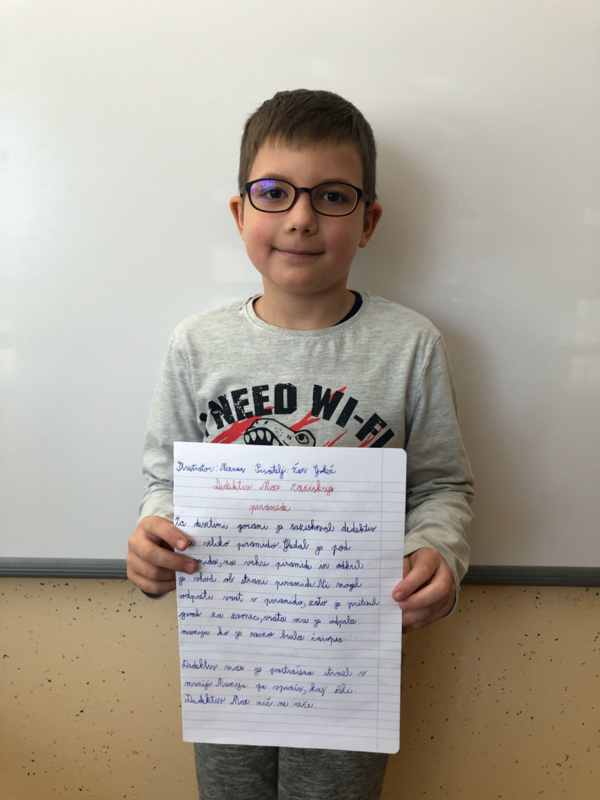 I NEED WI-FI
Ilustrator: Pisatelj: Žan
Detektiv Max raziskuje
piramide
Za devetimi gorami je raziskoval detektiv
veliko piramido. Gledal je pod
na vrhu piramide in odkril
je vhod ob strani piramide. Ni mogel
odpreti vrat v piramido, zato je pritisnil
gumb za zvonec, vrata mu je odprla
mumija ko je ravno brala časopis.
Detektiv max je prestrašeno strmel v
mumijo. Mumija ga vpraša, kaj želi.
Detektiv Max nič ne reče.